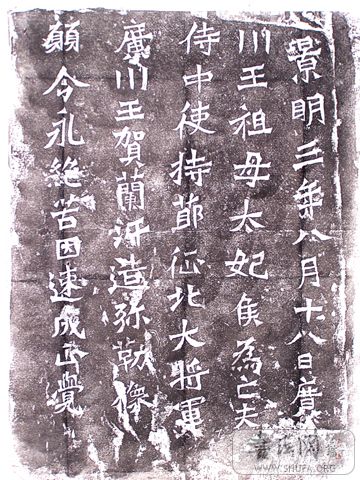 景明三年八月十八日廣
川王祖母太妃侯為亡夫
侍中使持節征北大將軍
廣川王賀蘭汗造弥勒像
願令永絕苦因速成正覺
書法网
WWW.SHUFA.ORG